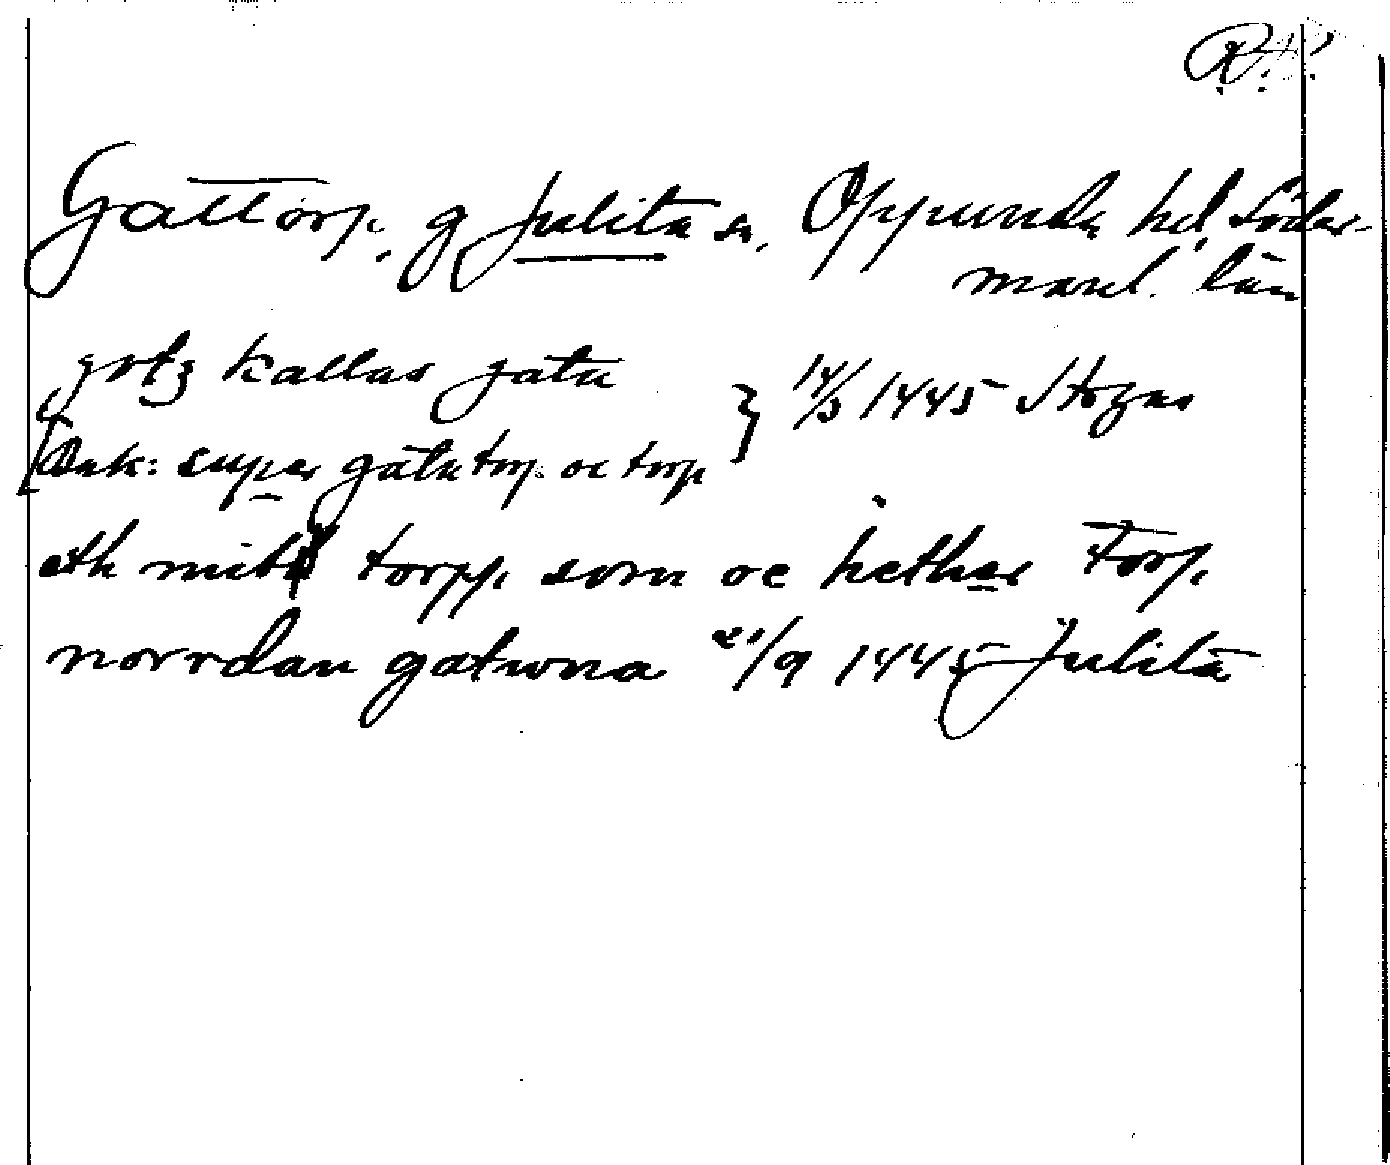 Gattorp, g Julita sn, Oppunda hd, Söder-
manl. län
gotz kallas gatu
[Bak: super gatutorp oc torp } 14/3 1445
eth mitt torpp som oc hether Torp
norrdan gatwna 21/9 1445 Julita